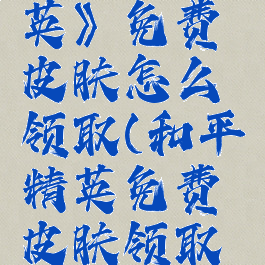 英》免费
皮肤怎么
领取(和平
精英免费
皮肤领取